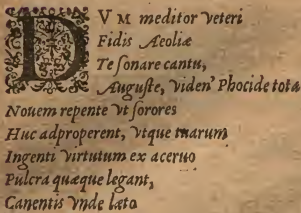 DVM meditor veteri
Fidis Aeoliæ
Te sonare cantu,
Auguste, viden' Phocide tota
Nouem repente vt sorores
Huc adproperent, vtque tuarum
Ingenti virtutum ex aceruo
Pulcra quæque legant,
Canentis vnde læto